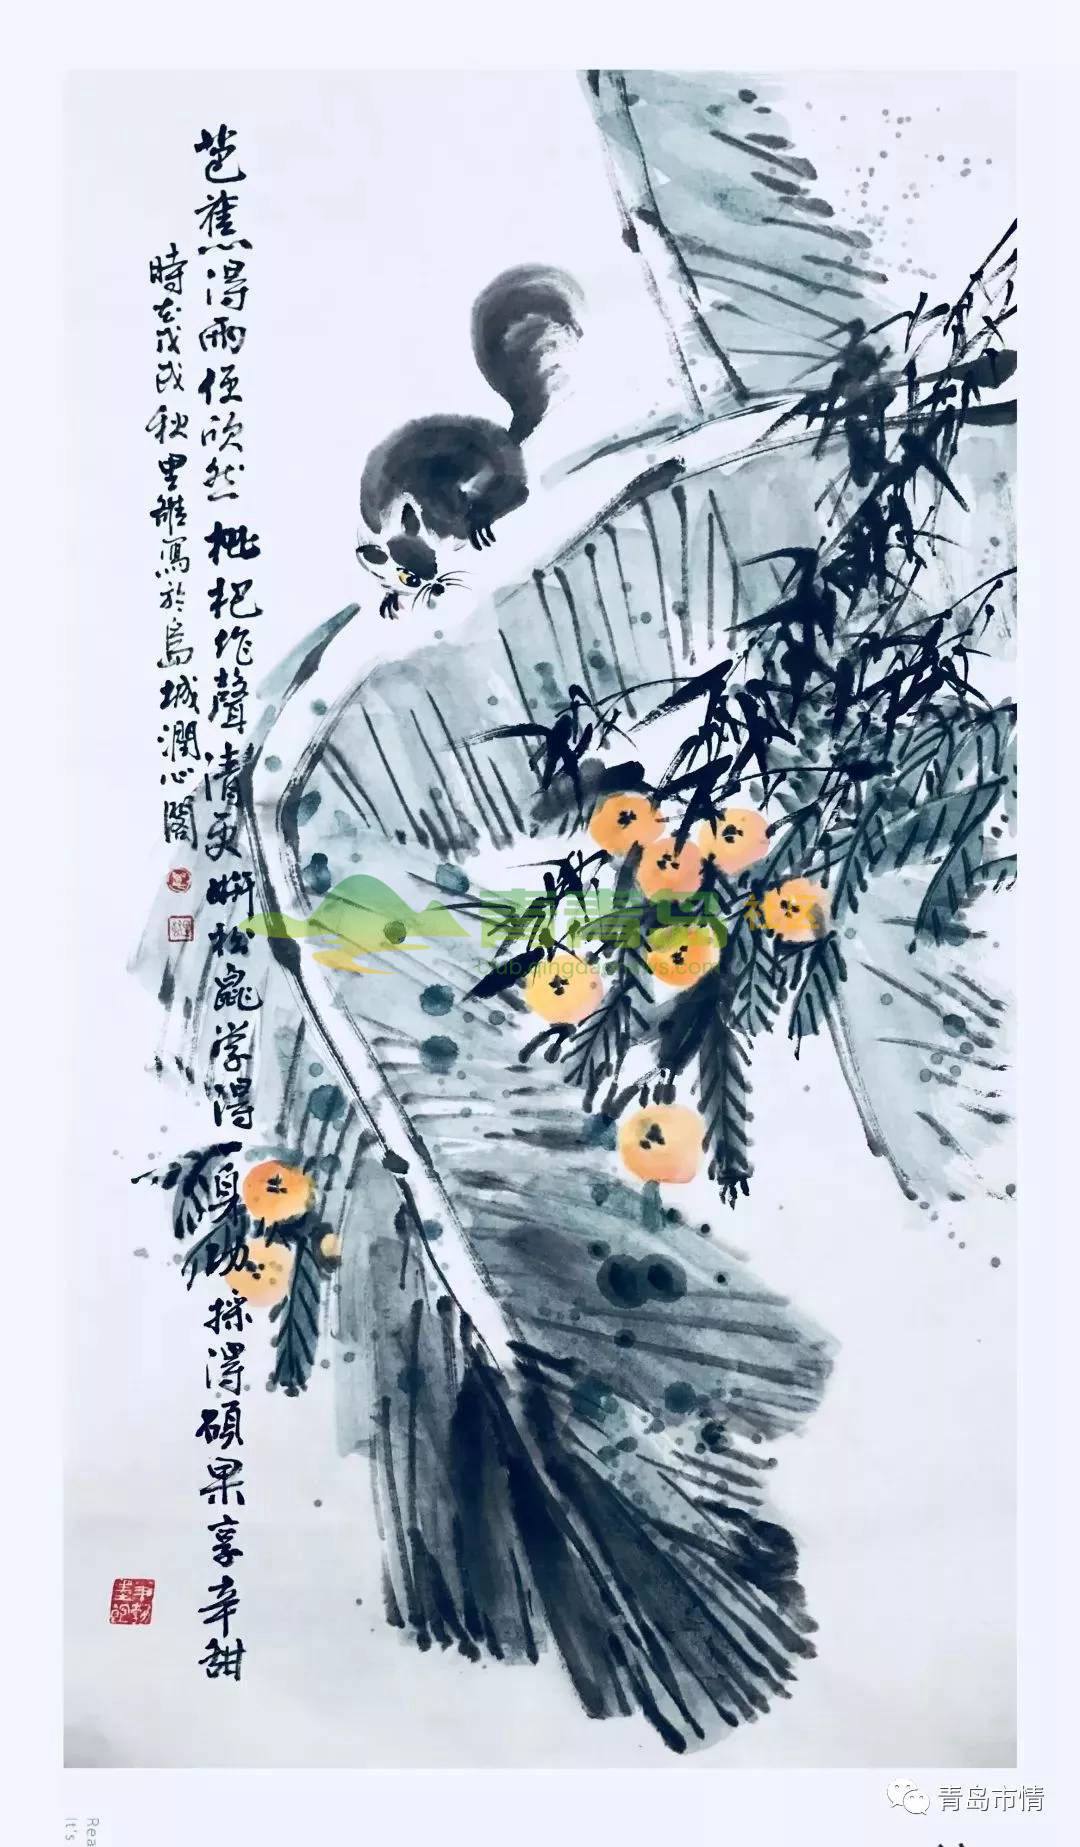 芭蕉得雨便欣然枇杷作聲清更妍松鼠学得一身功採得碩果享辛甜
時在戊戌秋里雄寫於島城潤心閣
青青岛 社区
club.qingdaonews.com
青岛市情
Rea
It's